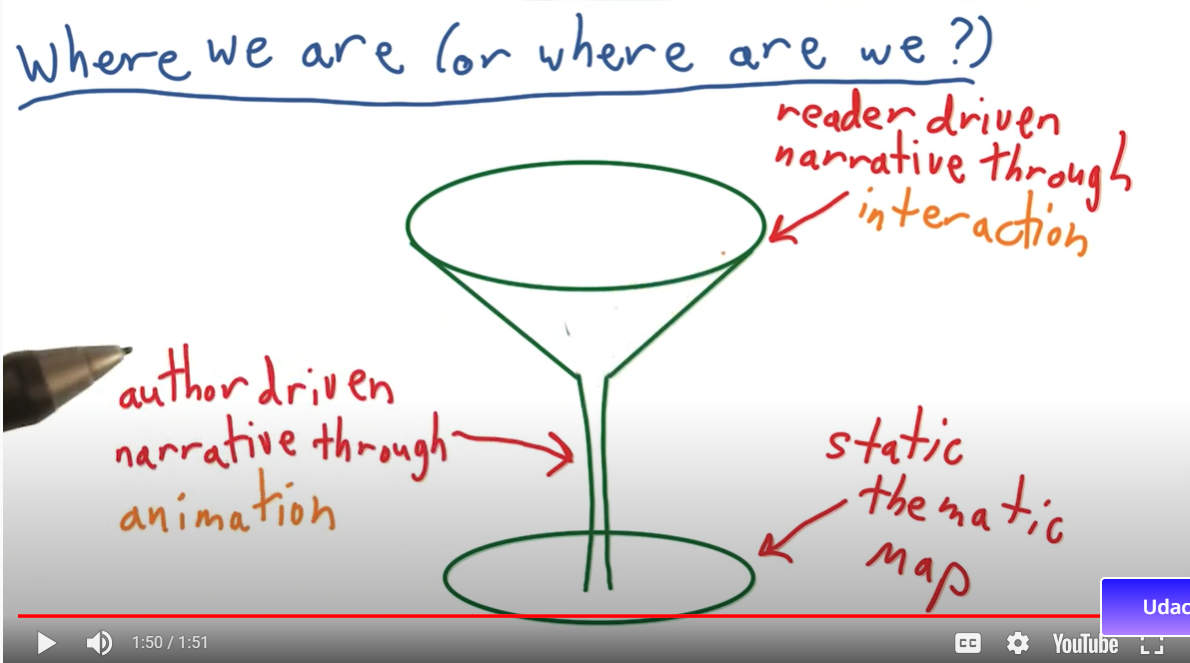 Where we are (or where are we?)
reader driven
narrative through
interaction
author driven
narrative through
animation
static
thematic
map
Udac
1:50 / 1:51
CC
YouTube